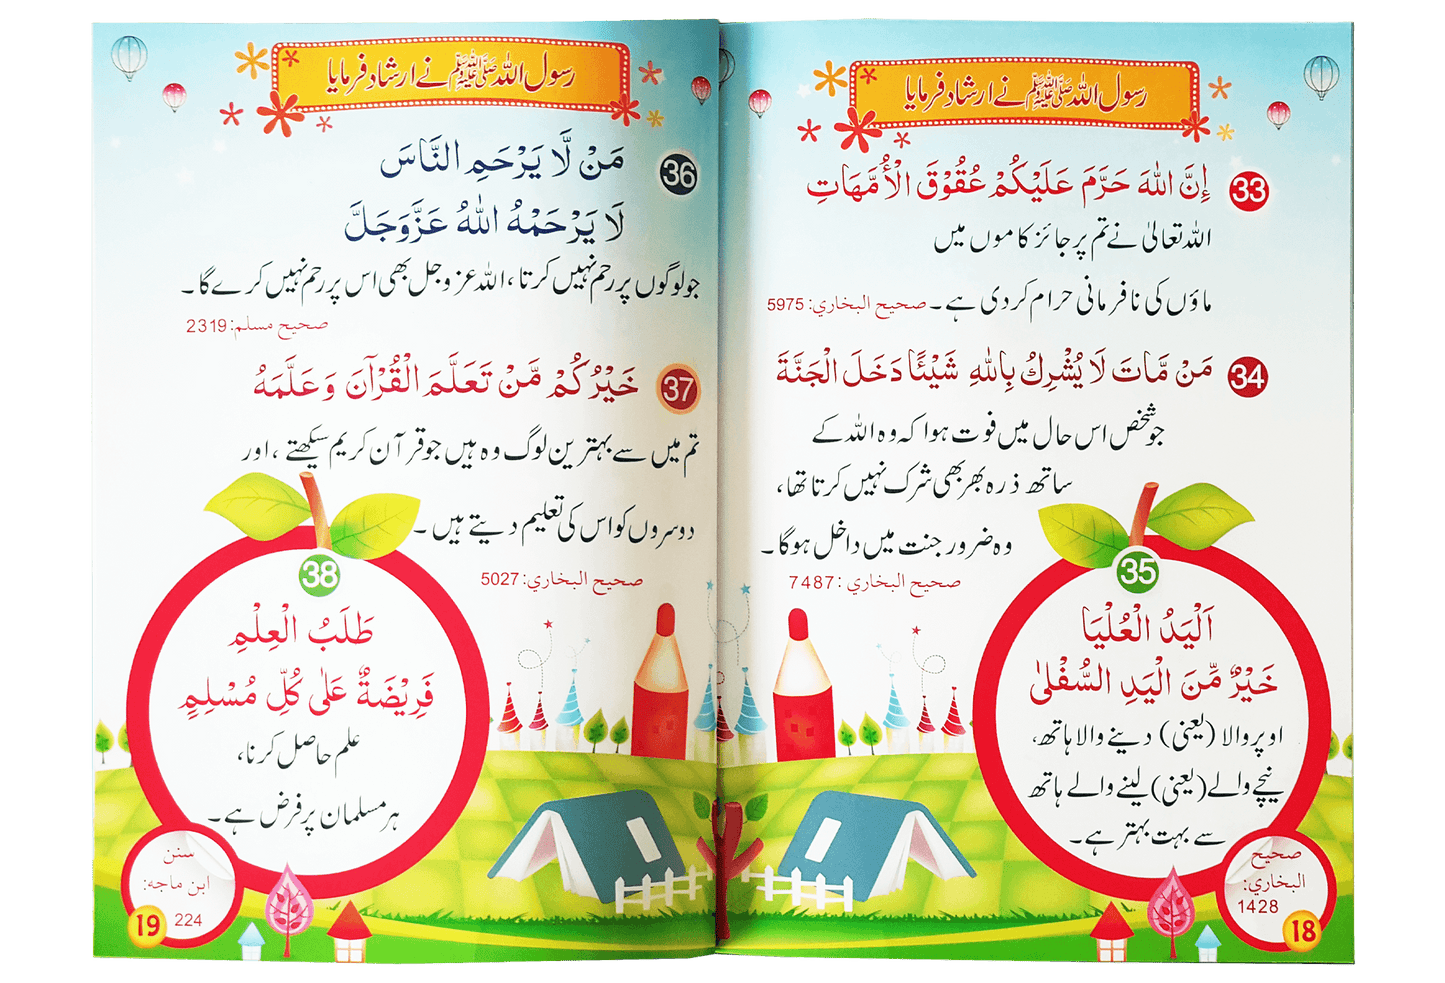 رسول اللہ ﷺ نے ارشاد فرمایا
33
إِنَّ اللهَ حَرَّمَ عَلَيْكُمْ عُقُوْقَ الْأُمَّهَاتِ
اللہ تعالیٰ نے تم پر جائز کاموں میں
ماؤں کی نافرمانی حرام کردی ہے۔ صحيح البخاري: 5975
34
مَنْ مَّاتَ لَا يُشْرِكُ بِاللهِ شَيْئًا دَخَلَ الْجَنَّةَ
جو شخص اس حال میں فوت ہوا کہ وہ اللہ کے
ساتھ ذرہ بھر بھی شرک نہیں کرتا تھا،
وہ ضرور جنت میں داخل ہوگا۔
صحيح البخاري: 7487
35
اَلْيَدُ الْعُلْيَا
خَيْرٌ مِّنَ الْيَدِ السُّفْلىٰ
اوپر والا (یعنی) دینے والا ہاتھ،
نیچے والے (یعنی) لینے والے ہاتھ
سے بہت بہتر ہے۔
صحيح
البخاري:
1428
18
رسول اللہ ﷺ نے ارشاد فرمایا
36
مَنْ لَّا يَرْحَمِ النَّاسَ
لَا يَرْحَمْهُ اللهُ عَزَّوَجَلَّ
جو لوگوں پر رحم نہیں کرتا، اللہ عزوجل بھی اس پر رحم نہیں کرے گا۔
صحيح مسلم: 2319
37
خَيْرُكُمْ مَّنْ تَعَلَّمَ الْقُرْآنَ وَعَلَّمَهُ
تم میں سے بہترین لوگ وہ ہیں جو قرآن کریم سیکھتے، اور
دوسروں کو اس کی تعلیم دیتے ہیں۔
صحيح البخاري: 5027
38
طَلَبُ الْعِلْمِ
فَرِيْضَةٌ عَلىٰ كُلِّ مُسْلِمٍ
علم حاصل کرنا،
ہر مسلمان پر فرض ہے۔
سنن
ابن ماجه:
224
19